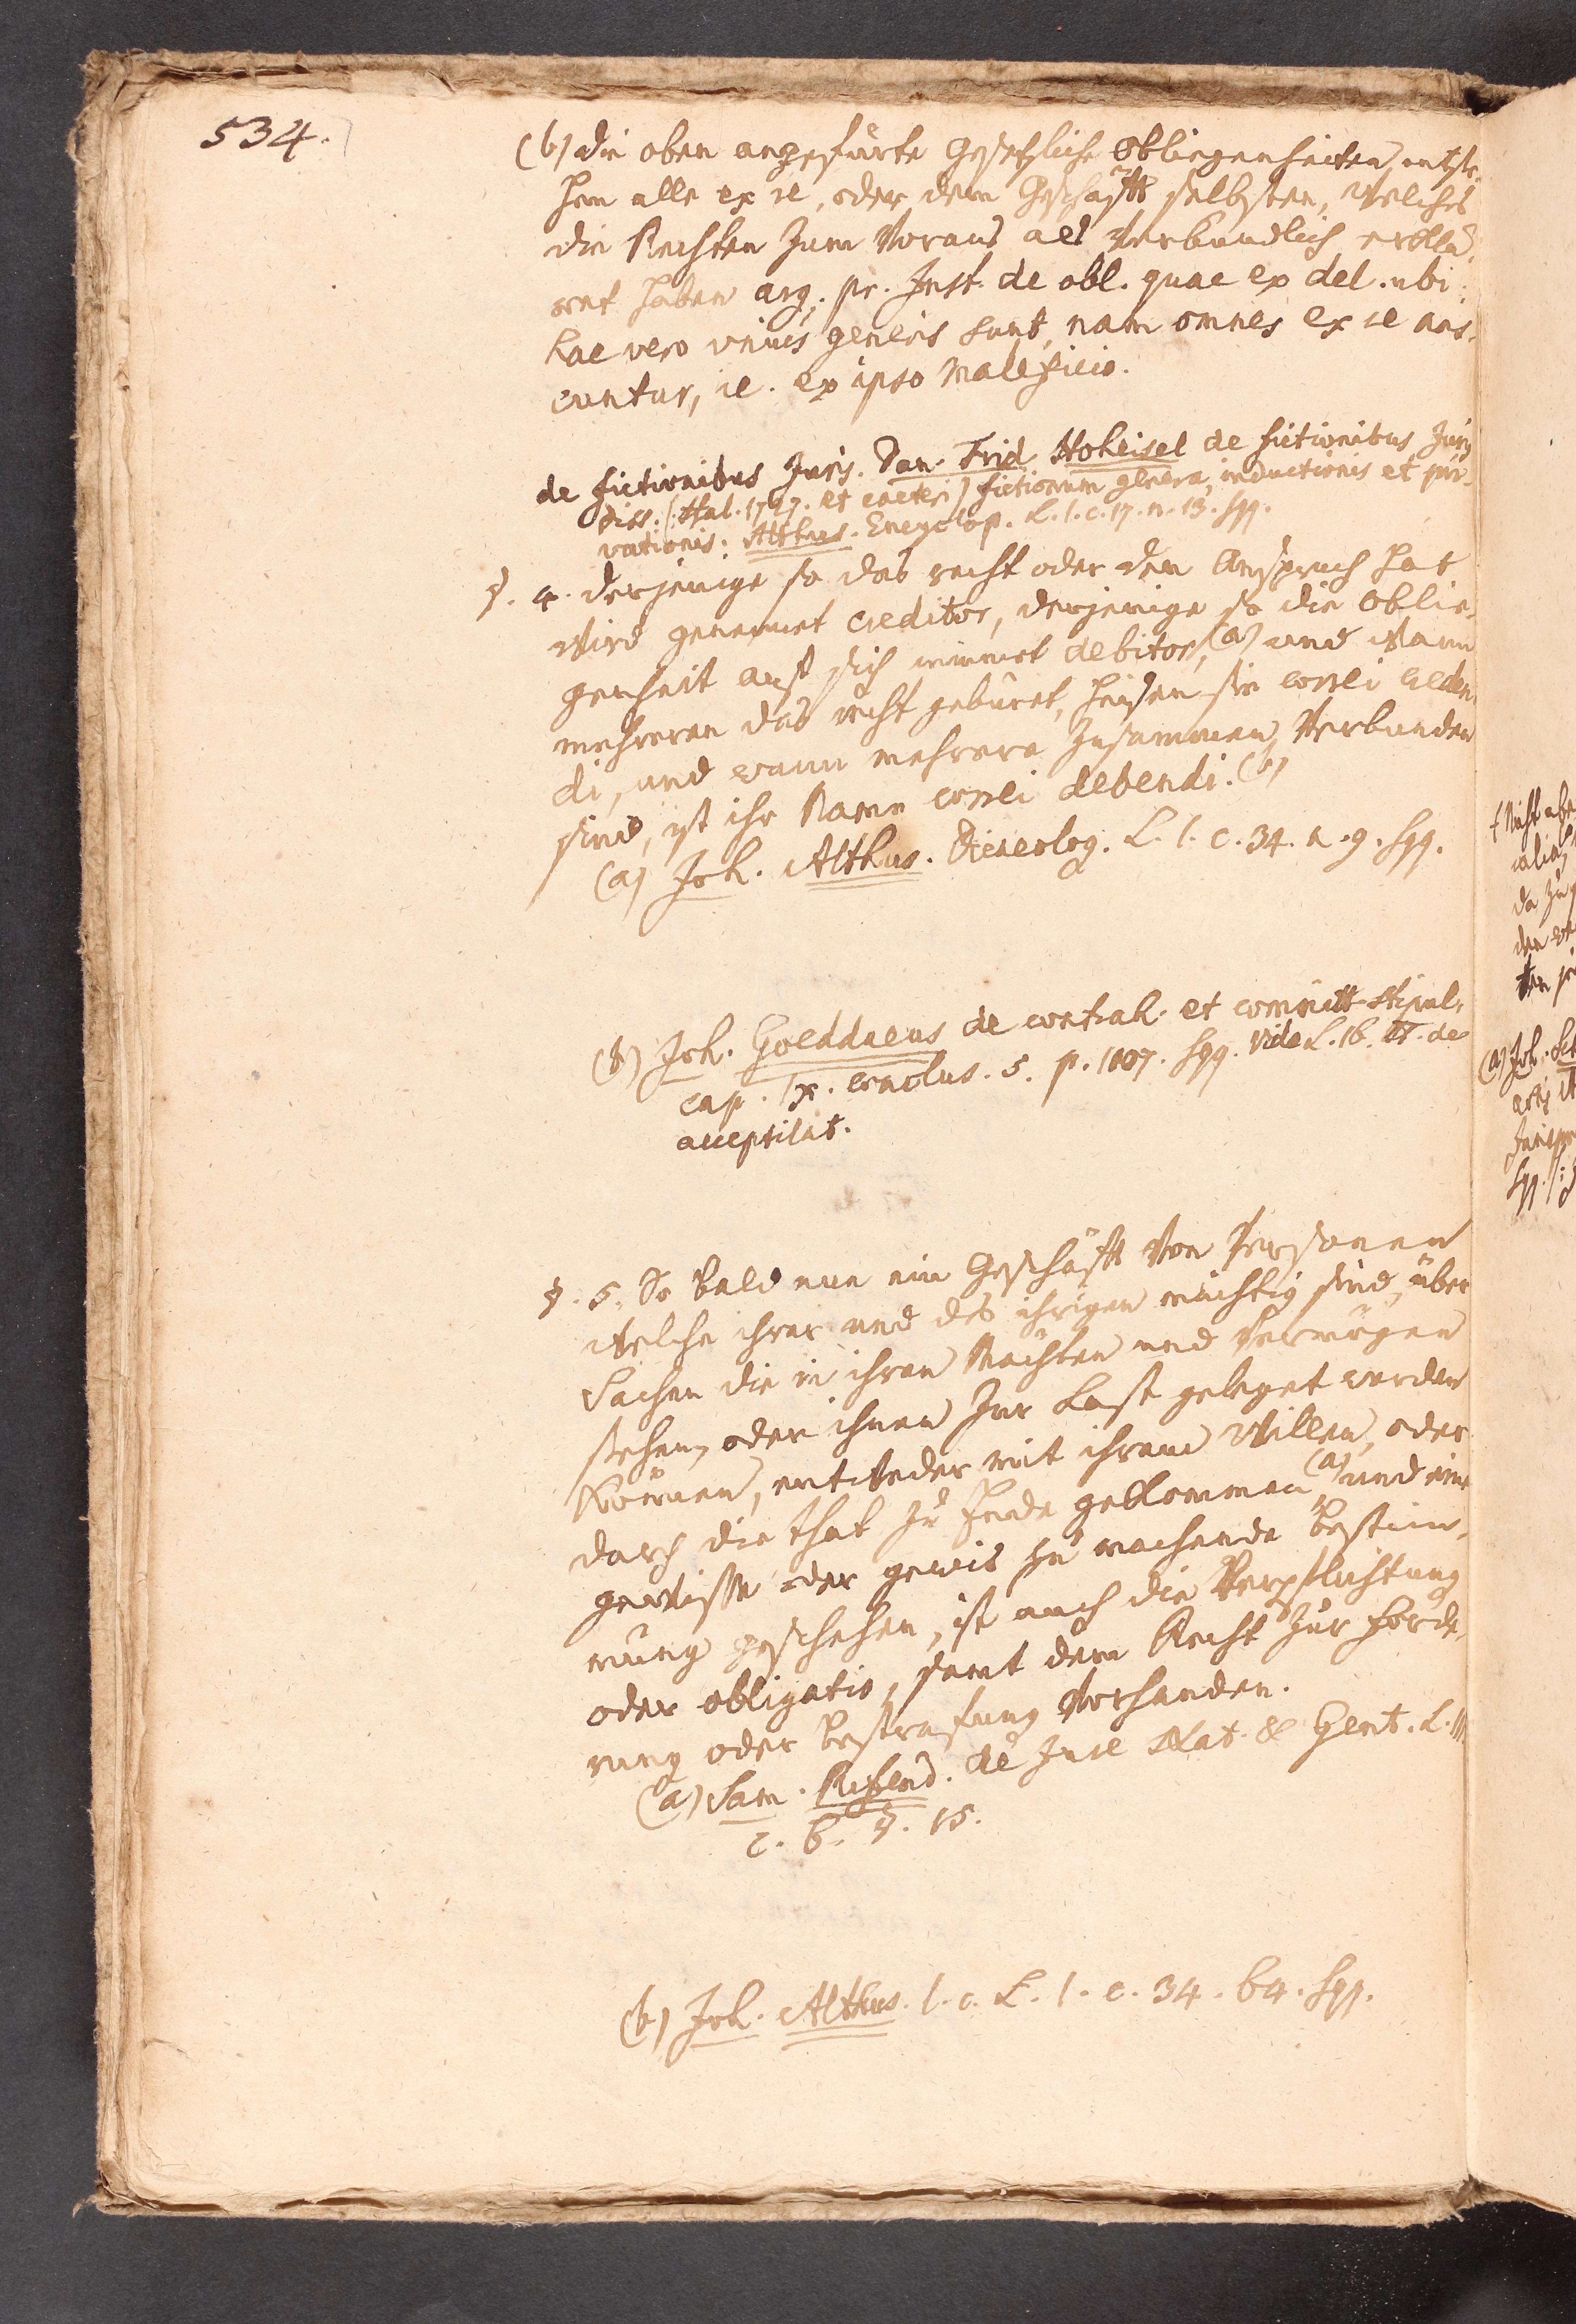 534.
(b) die oben angefürte Gesetzliche Obliegenheiten entste-
hen alle ex re, oder dem Geschäfft selbsten, welches
die Rechten zum Voraus als Verbundlich erklä-
ret haben arg. pr. Inst. de obl. quae ex del. ubi:
hae vero unius generis sunt, nam omnes ex re nas-
cuntur, ie. ex ipso maleficio.
de fictionibus Juris. Dan. Frid. Hoheisel de fictionibus Juris
diss. (Hal. 1727. et ceteri) fictionum genera, inductionis et pri-
vationis: Althus. Encyclop. L. 1. c. 17. n. 13. sqq.
§. 4. derjenige so das recht oder den Anspruch hat
wird genennet creditor, derjenige so die Oblie-
genheit auf sich nimmet debitor, (a) und wann
mehreren das recht gebüret, heisen sie correi creden-
di, und wann mehrere zusammen Verbunden
sind, ist ihr Name correi debendi. (b)
(a) Joh. Althus. Dicaeolog. L. 1. c. 34. n. 9. sqq.
(b) Joh. Goeddaeus de contrah. et committ. stipul.
cap. 1x. conclus. 5. p. 1007. sqq. vide L. 16. ff. de
acceptilat.
§. 5. So bald nun ein Geschäfft von Personen
welche ihrer und des ihrigen mächtig sind, über
Sachen die in ihren Mächten und Vermögen
stehen, oder ihnen zur Last geleget werden
können, entweder mit ihrem Willen, oder
durch die that zu Ende gekommen, (a) und eine
gewisse oder gewis zu machende Bestim-
mung geschehen, ist auch die Verpflichtung
oder obligatio, samt dem Recht zur Forde-
rung oder Bestrafung Vorhanden.
(a) Sam. Pufend. de Jure Nat. & Gent. L. III
c. 6. §. 15.
(b) Joh. Althus. l. c. L. 1. c. 34. 64. sqq.